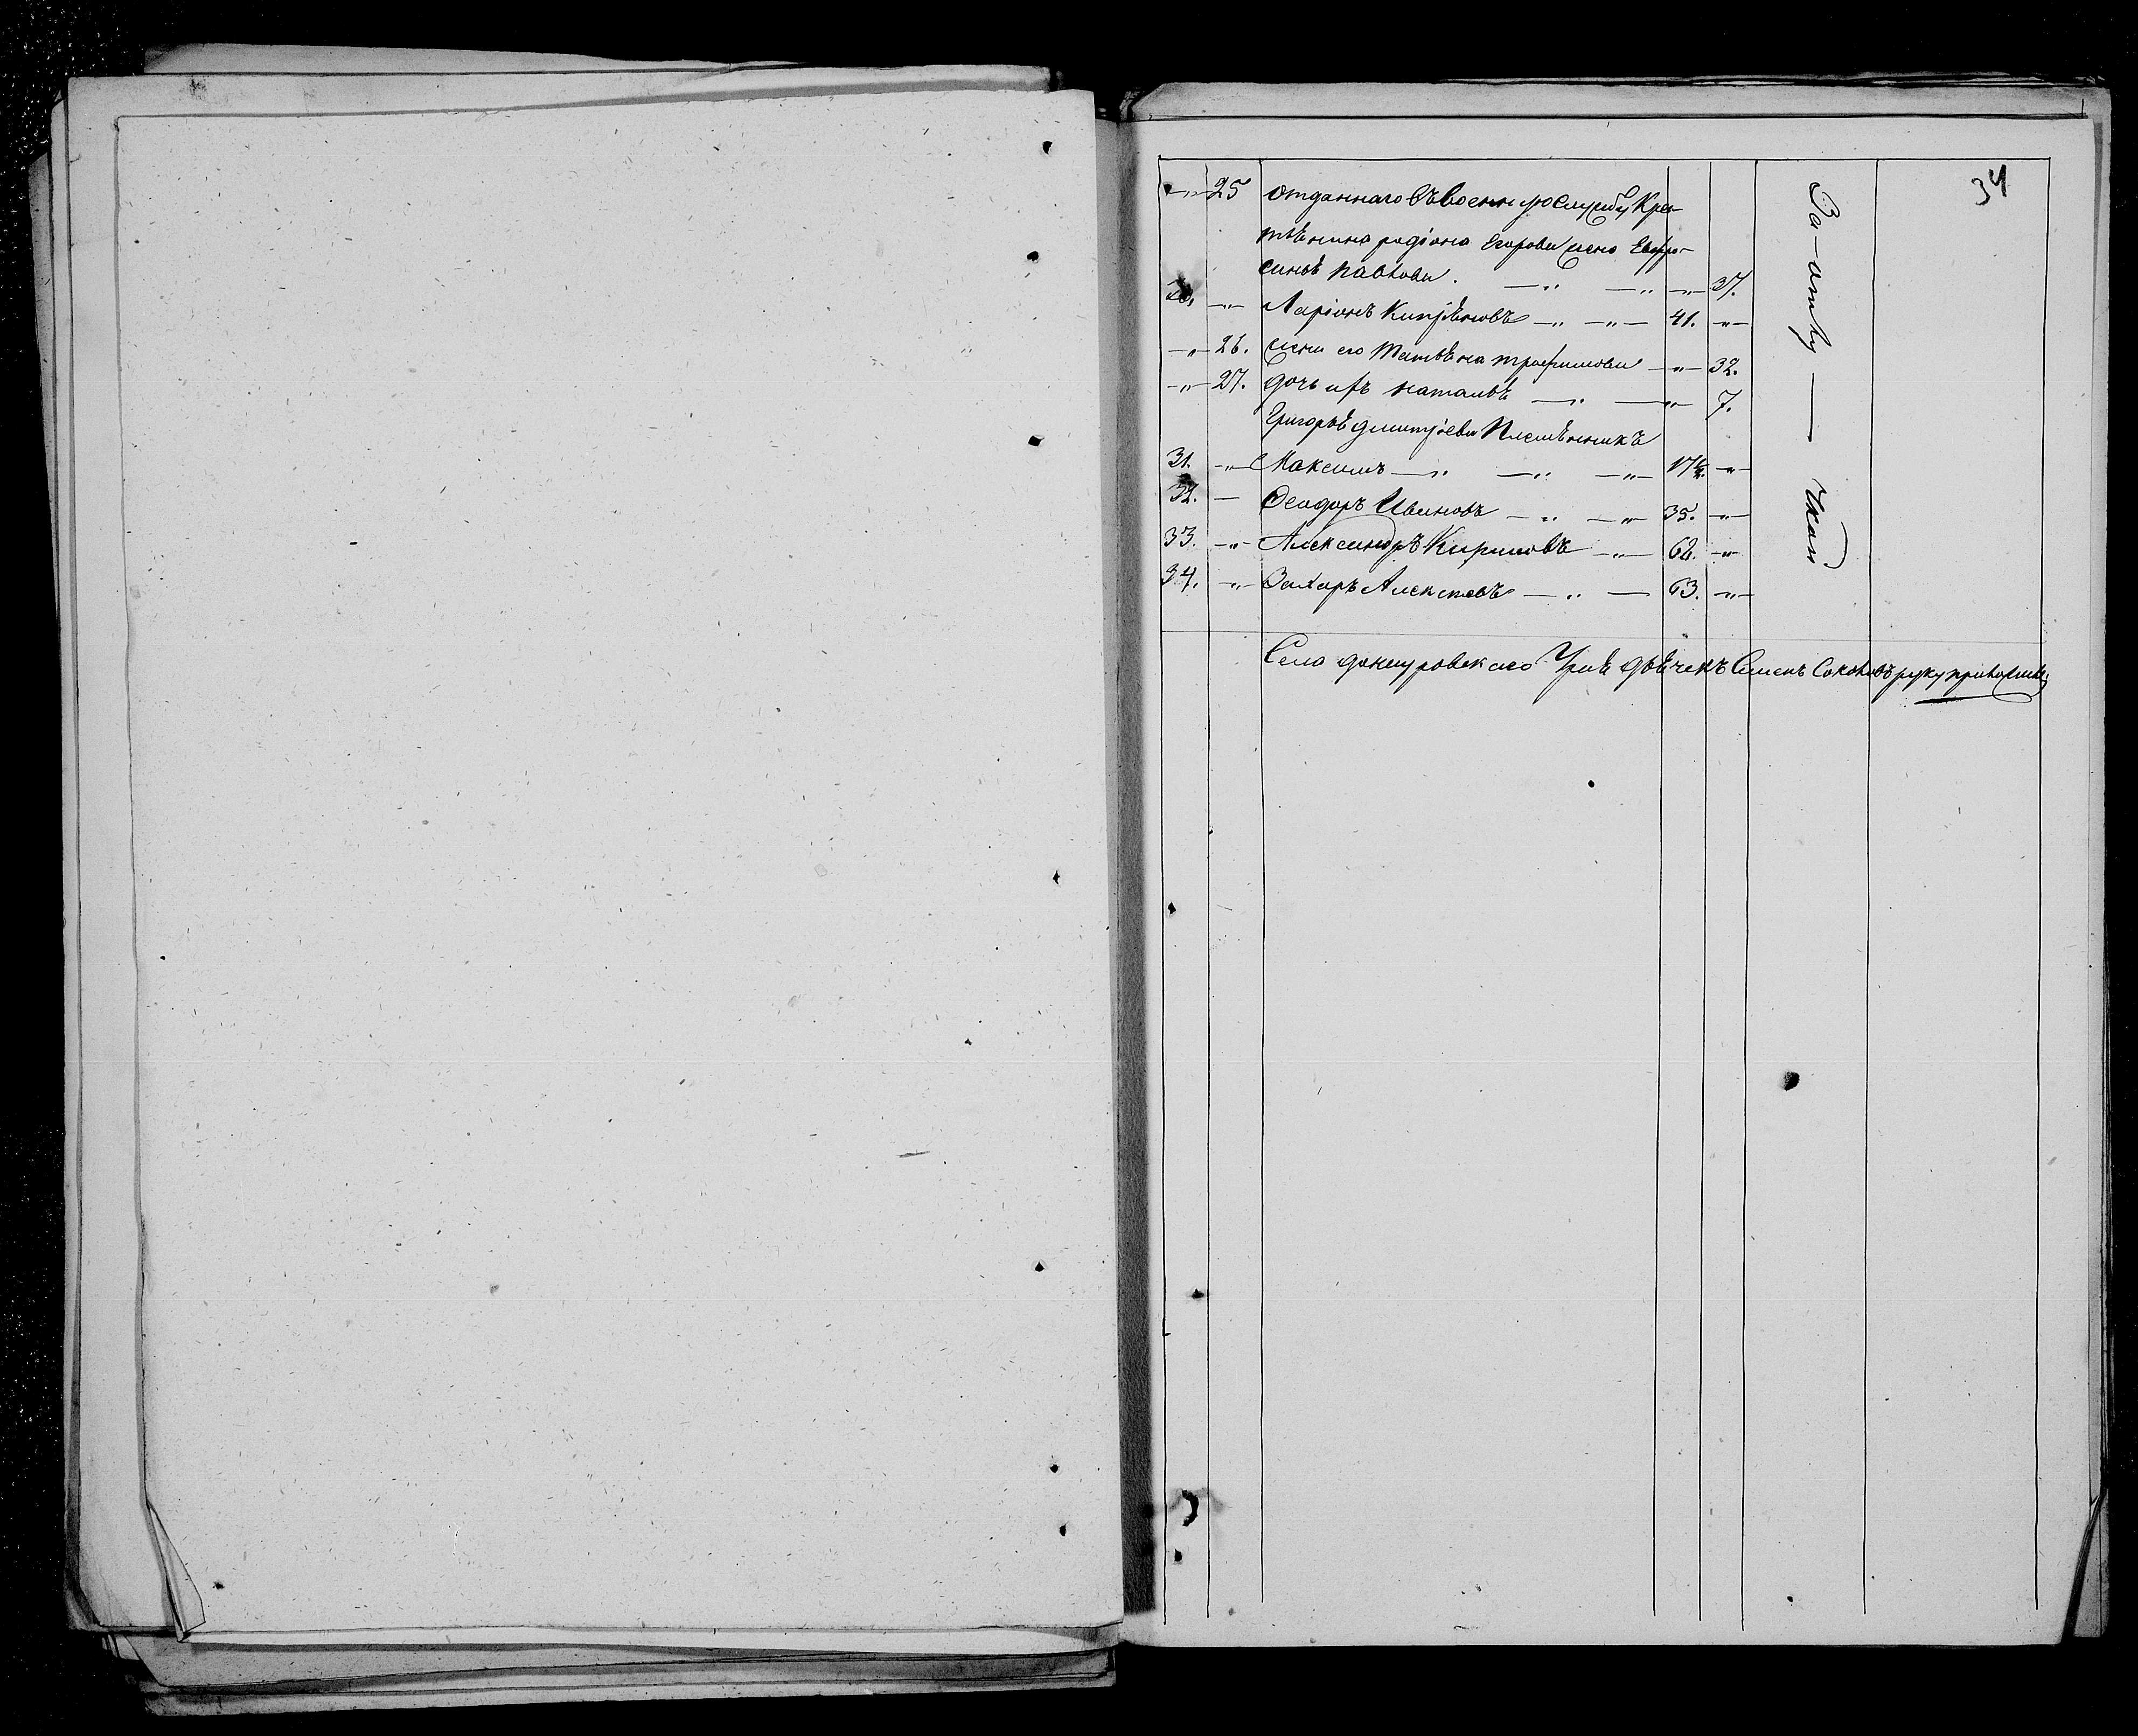 34
—"— 25 отданнаго въ военную службу Кре-
стьянина родiона Егорова жена Евфро-
синья павлова. —"— —"— —"— 37.
—"— Ларiонъ Кипрѣяновъ —"— —"— 41. —"—
—"— 26. жена его татьѣна трофимова —"— 32.
—"— 27. дочь ихъ наталья —"— —"— 7.
Григорья дмитрiева Племѣнникъ
31. —"— Максимъ —"— —"— —"— 17½. —"—
32. — Феодоръ Ивановъ —"— —"— 35. —"—
33. —"— Александръ Кириловъ —"— 62. —"—
34. —"— Захаръ Алексѣевъ —"— — 63. —"—
За-отлу — чкой
Села донгуровскаго Урая дьячекъ Семенъ Соколовъ руку приложилъ